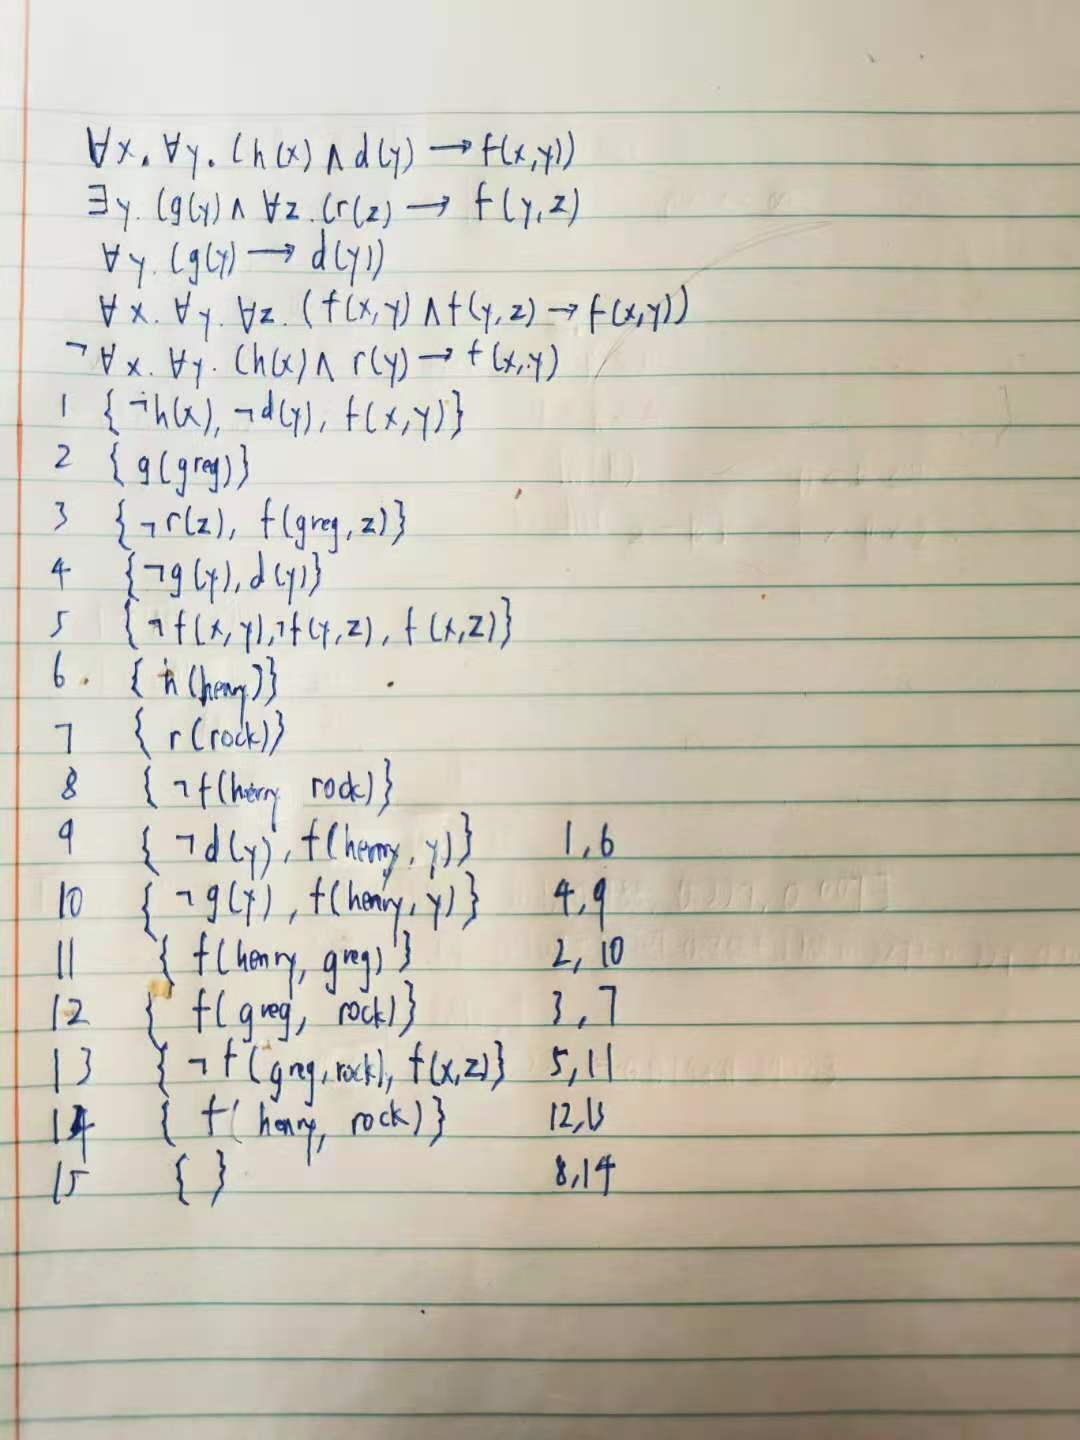 ∀x. ∀y. (h(x) ∧ d(y) → f(x,y))
∃y. (g(y) ∧ ∀z. (r(z) → f(y,z)
∀y. (g(y) → d(y))
∀x. ∀y. ∀z. (f(x,y) ∧ f(y,z) → f(x,y))
¬∀x. ∀y. (h(x) ∧ r(y) → f(x,y)
1 {¬h(x), ¬d(y), f(x,y)}
2 {g(greg)}
3 {¬r(z), f(greg,z)}
4 {¬g(y), d(y)}
5 {¬f(x,y), ¬f(y,z), f(x,z)}
6. {h(henry)}
7 {r(rock)}
8 {¬f(henry rock)}
9 {¬d(y), f(henry, y)} 1,6
10 {¬g(y), f(henry, y)} 4,9
11 {f(henry, greg)} 2, 10
12 {f(greg, rock)} 3,7
13 {¬f(greg, rock), f(x,z)} 5,11
14 {f(henry, rock)} 12,13
15 {} 8,14